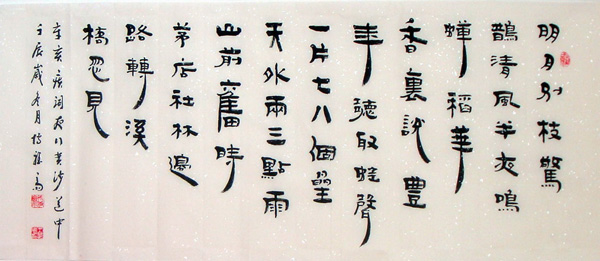 明月別枝驚
鵲清風半夜鳴
蟬稻華
香裏說豐
年聽取蛙聲
一片七八個星
天外兩三點雨
山前舊時
茅店社林邊
路轉溪
橋忽見
辛弃疾詞夜行黃沙道中
壬辰歲冬月